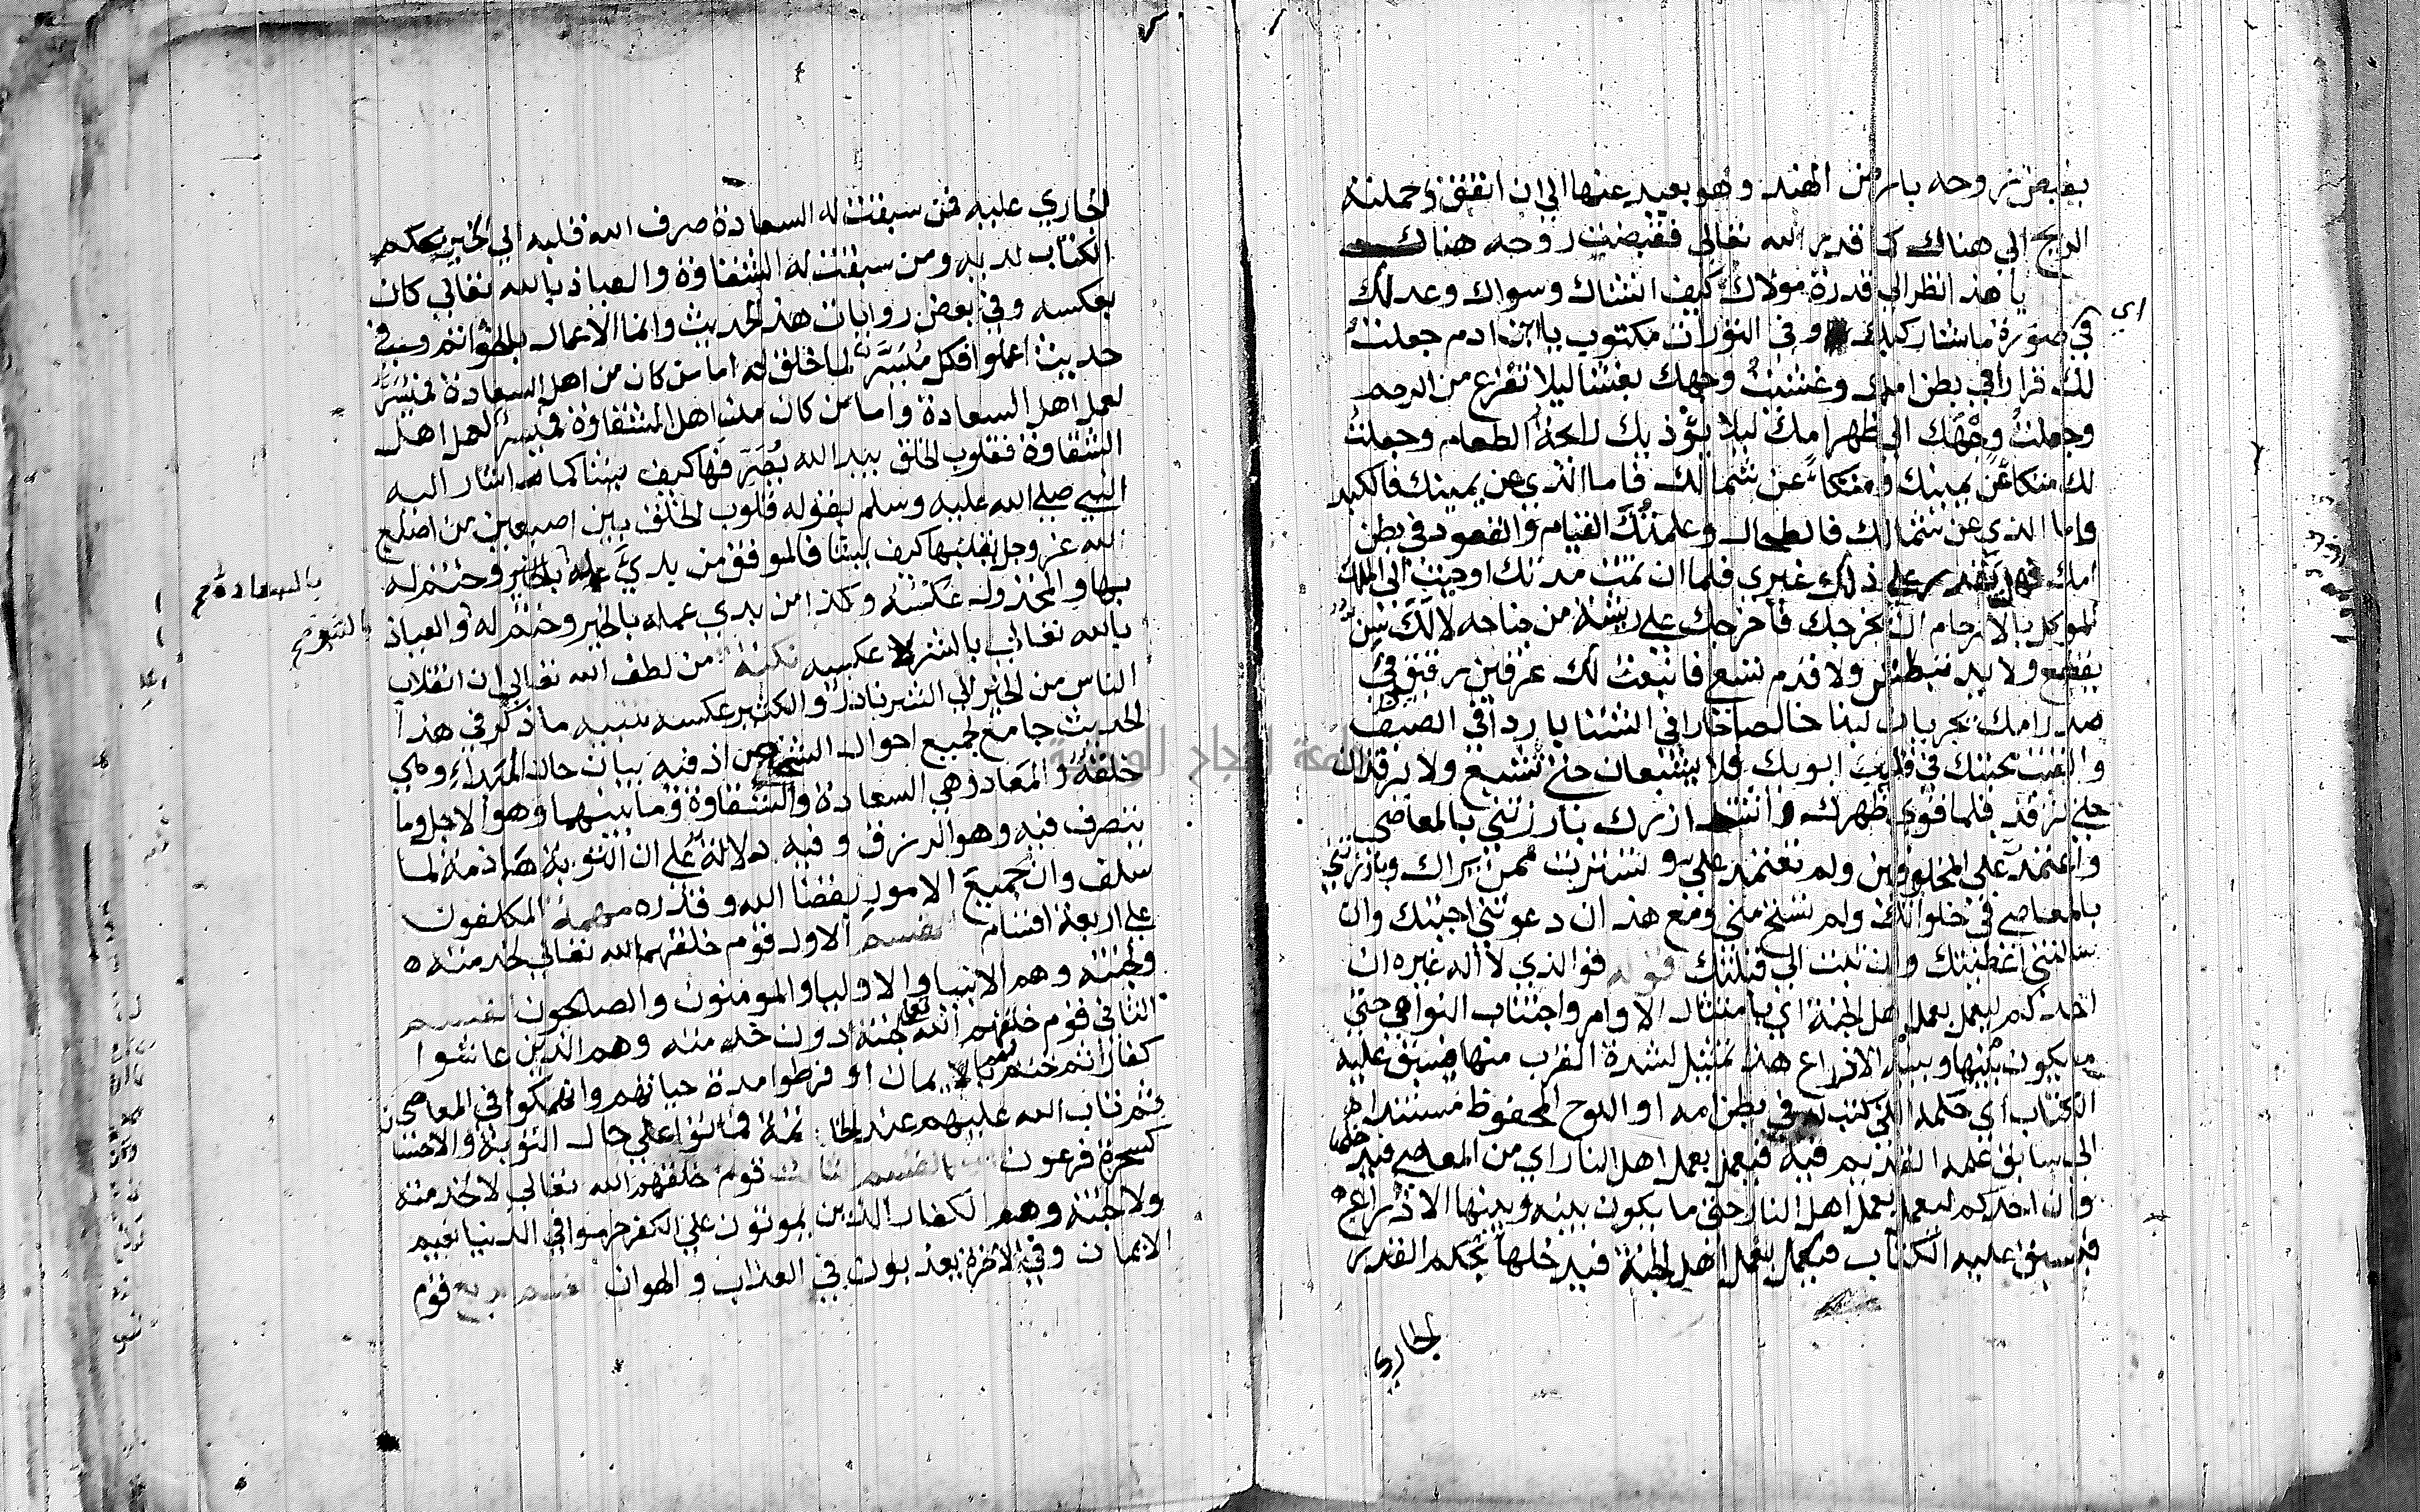 بقبض روحه بارض الهند وهو بعيد عنها الي ان اتفق وحملته
الريح الي هناك كما قدر الله تعالى فقبضت روحه هناك
يا هذا انظر الي قدرة مولاك كيف انشاك وسواك وعدلك
اي
في صورة ما شا ركبك وفي التورات مكتوب يا ابن ادم جعلت
لك قرارا في بطن امك وغشيت وجهك بغشا ليلا تفزع من الرحم
وجعلت وجهك الي ظهر امك ليلا يؤذيك رايحة الطعام وجعلت
لك متكا عن يمينك ومتكا عن شمالك فاما الذي عن يمينك فالكبد
واما الذي عن شمالك فالطحال وعلمتك القيام والقعود في بطن
امك فهل يقدر علي ذلك غيري فلما ان تمت مدتك اوحيت الي الملك
الموكل بالارحام ان يخرجك فاخرجك علي ريشة من جناحه لا لك سن
يقطع ولا يد تبطش ولا قدم تسعي فانبعث لك عرقين رقيقين في
صدر امك يجريان لبنا خالصا حارا في الشتا باردا في الصيف
والقيت محبتك في قلب ابويك فلا يشبعان حتي تشبع ولا يرقدان
حتي ترقد فلما قوي ظهرك واشتد ازرك بارزتني بالمعاصي
واعتمدت علي المخلوقين ولم تعتمد علي وتسترت ممن يراك وبارزتني
بالمعاصي في خلواتك ولم تستح مني ومع هذا ان دعوتني اجبتك وان
سالتني اعطيتك وان تبت الي قبلتك قوله فوالذي لا اله غيره ان
احدكم ليعمل بعمل اهل الجنة اي بامتثال الاوامر واجتناب النواهي حتي
ما يكون بينها وبينه الا ذراع هذا تمثيل لشدة القرب منها فيسبق عليه
الكتاب اي حكمه الذي كتب له في بطن امه او اللوح المحفوظ مستندا
الي سابق علمه القديم فيه فيعمل بعمل اهل النار اي من المعاصي فيدخلها
وان احدكم ليعمل بعمل اهل النار حتي ما يكون بينه وبينها الا ذراع
فيسبق عليه الكتاب فيعمل بعمل اهل الجنة فيدخلها بحكم القدر
الجاري
الجاري عليه فمن سبقت له السعادة صرف الله قلبه الي الخير بحكم
الكتاب لديه ومن سبقت له الشقاوة والعياذ بالله تعالي كان
بعكسه وفي بعض روايات هذا الحديث وانما الاعمال بالخواتم وسبق في
حديث اعملوا فكل ميسر لما خلق له اما من كان من اهل السعادة فميسر
لعمل اهل السعادة واما من كان من اهل الشقاوة فميسر لعمل اهل
الشقاوة فقلوب الخلق بيد الله يصرفها كيف يشا كما اشار اليه
النبي صلي الله عليه وسلم بقوله قلوب الخلق بين اصبعين من اصابع
الله عز وجل يقلبها كيف يشا فالموفق من بدي عمله بالخير وختم له
بالسعادة صح
بها والمخذول عكسه وكذا من بدي عمله بالخير وختم له والعياذ
بالشر صح
بالله تعالي بالشر لا عكسه نكتة من لطف الله تعالي ان انقلاب
الناس من الخير الي الشر نادر والكثير عكسه تنبيه ما ذكر في هذا
الحديث جامع لجميع احوال الشخص اذ فيه بيان حال المبداء وهي
خلقه والمعاد وهي السعادة والشقاوة وما بينهما وهو الاجل وما
يتصرف فيه وهو الرزق وفيه دلالة علي ان التوبة هادمة لما
سلف وان جميع الامور بقضا الله وقدره مهمة المكلفون
علي اربعة اقسام القسم الاول قوم خلقهم الله تعالي لخدمته
ولجنته وهم الانبيا والاوليا والمومنون والصالحون القسم
الثاني قوم خلقهم الله تعالى لجنته دون خدمته وهم الذين عاشوا
كفارا ثم ختم لهم بالايمان او فرطوا مدة حياتهم وانهمكوا في المعاصي
ثم تاب الله عليهم عند الخاتمة فماتوا علي حال التوبة والاحسان
كسحرة فرعون القسم الثالث قوم خلقهم الله تعالي لا لخدمته
ولا لجنته وهم الكفار الذين يموتون علي الكفر حرموا في الدنيا نعيم
الايمان وفي الاخرة يعذبون في العذاب والهوان القسم الرابع قوم